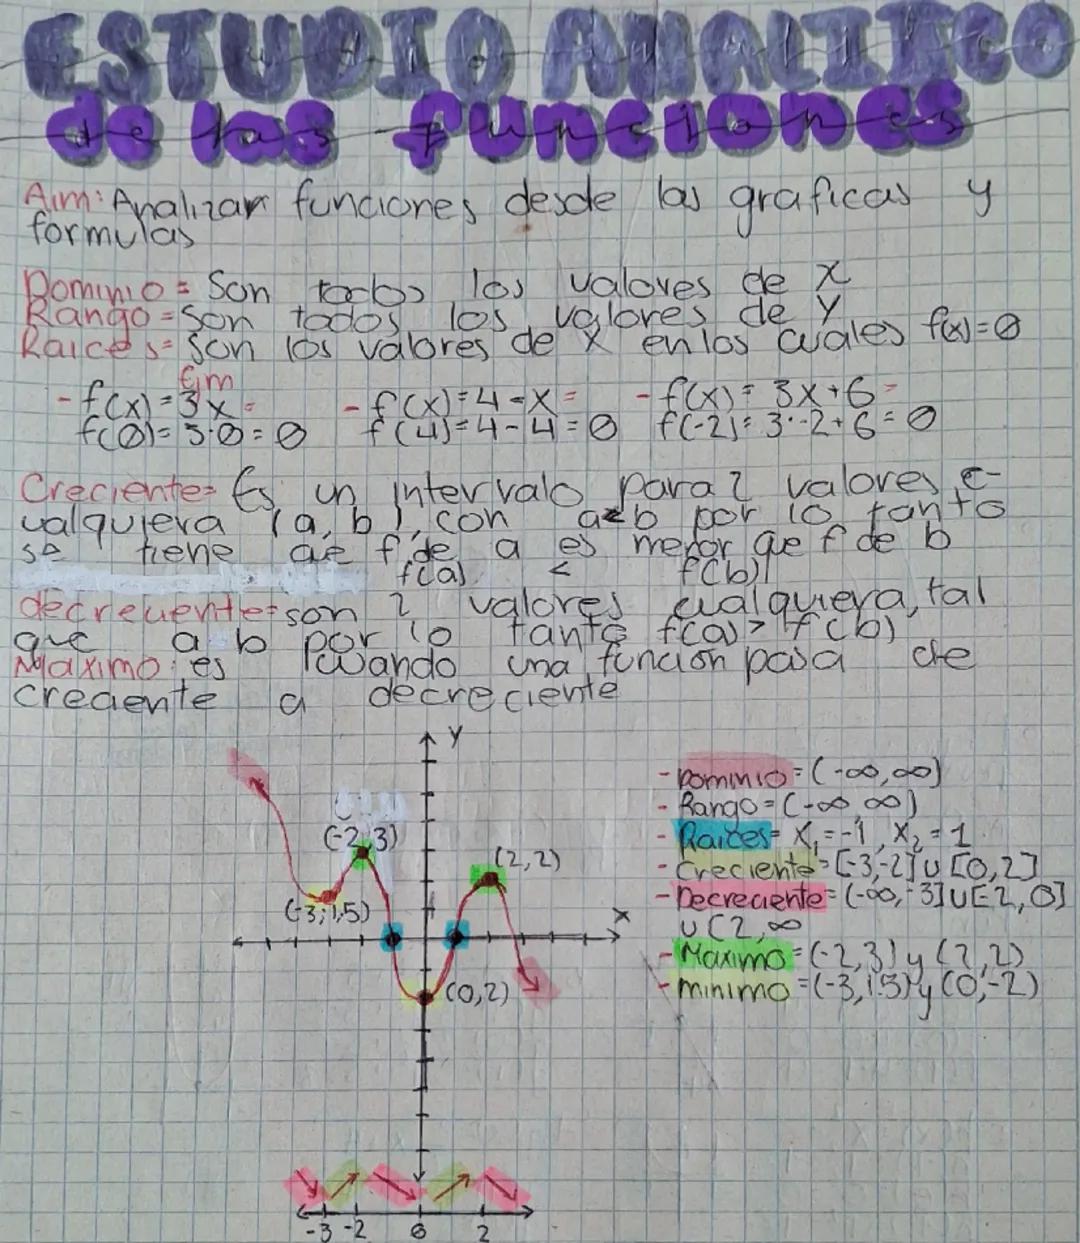 ESTUDIO ANALITICO
de las funciones
Aim: Analizar funciones desde las graficas y
formulas
Dominio = Son todos los valores de X
Rango = son todos los valores de Y
Raices = son los valores de X en los cuales f(x) = 0
Ejm
- f(x) = 3x = - f(x) = 4 - x = - f(x) = 3x + 6 =
f(0) = 3·0 = 0 f(4) = 4 - 4 = 0 f(-2) = 3·-2 + 6 = 0
Creciente = Es un intervalo para 2 valores c-
ualquiera (a, b), con a<b por lo tanto
se tiene que f de a es menor que f de b
f(a) < f(b)
decreciente = son 2 valores cualquiera, tal
que a b por lo tanto f(a) > f(b)
Maximo: es cuando una funcion pasa de
creciente a decreciente
Y
(-2, 3)
(2, 2)
(-3; 1,5)
X
(0, 2)
- Dominio = (-∞, ∞)
- Rango = (-∞ ∞)
- Raices = X₁ = -1, X₂ = 1
- Creciente = [-3, -2] U [0, 2]
- Decreciente = (-∞, -3] U [-2, 0]
U [2, ∞
- Maximo = (-2, 3) y (2, 2)
- minimo = (-3, 1.5) y (0, -2)
-3 -2 0 2